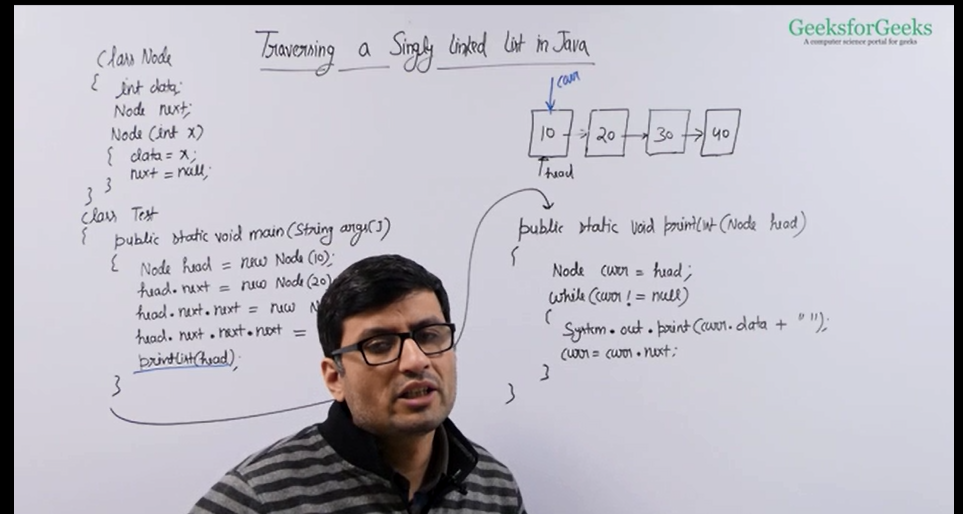 GeeksforGeeks
A computer science portal for geeks
Traversing a Singly linked list in Java
class Node
{
int data;
Node next;
Node (int x)
{ data = x;
next = null;
}
}
class Test
{ public static void main(String args[])
{ Node head = new Node (10);
head.next = new Node (20)
head.next.next = new N
head.next.next.next =
printList(head);
}
curr
10 20 30 40
head
public static void printList (Node head)
{
Node curr = head;
while (curr != null)
{
System.out.print(curr.data + " ");
curr = curr.next;
}
}